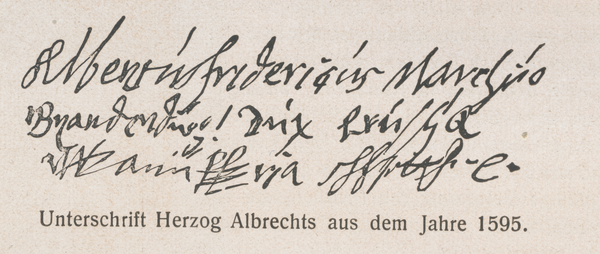 Albertus fridericus Marchio
Brandenburg: Dux Prussię
manu ppria
Unterschrift Herzog Albrechts aus dem Jahre 1595.